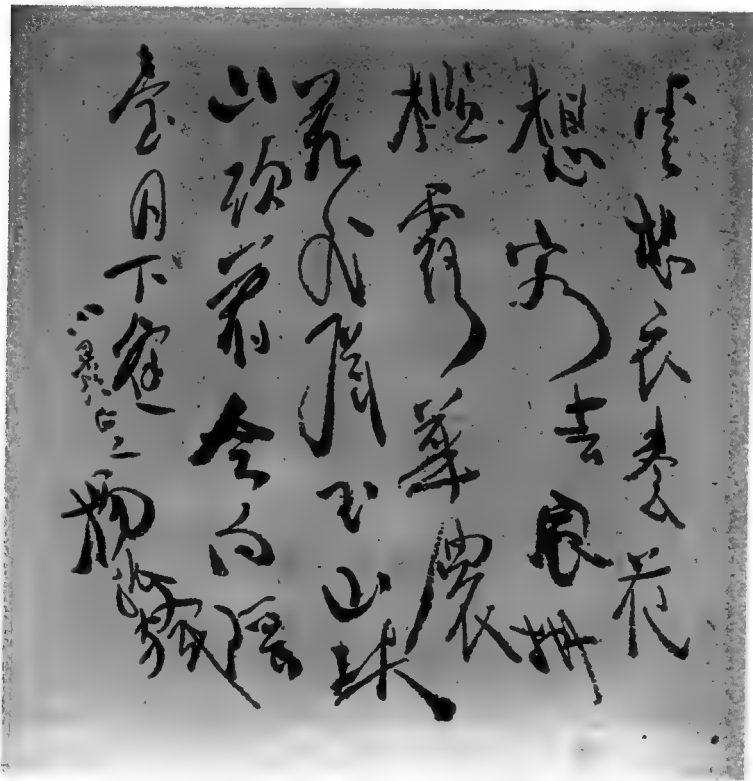 雲想衣裳花
想容春風拂
檻露華濃
若非羣玉山
山頭會向瑤
臺月下逢
楊